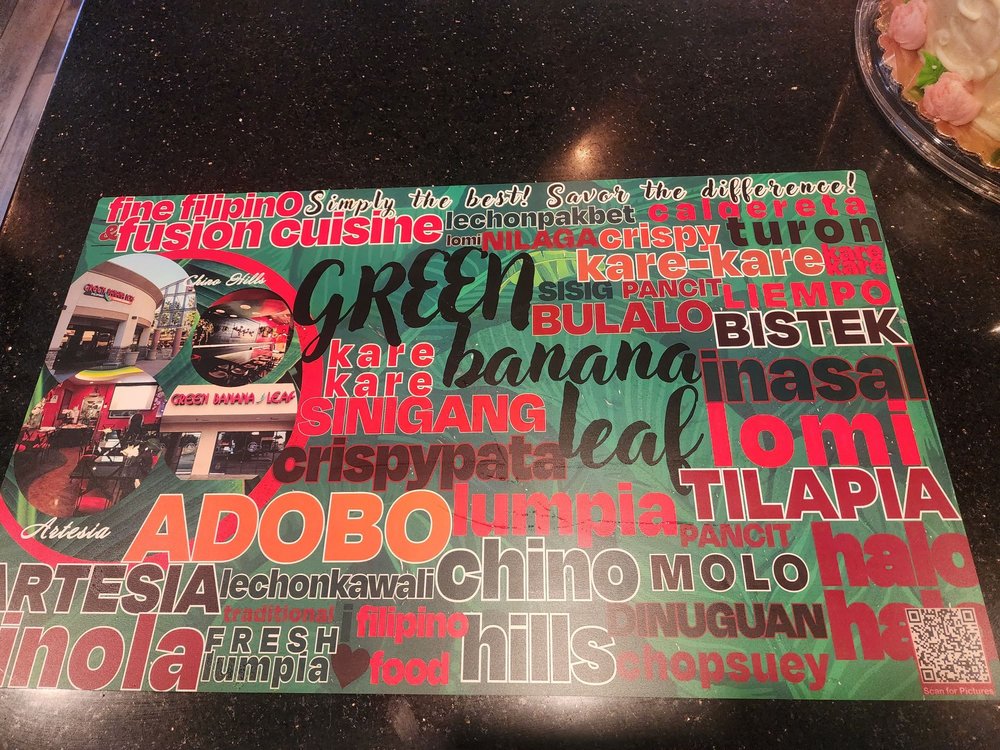 fine filipinO
& fusion cuisine
Simply the best! Savor the difference!
lechonpakbet
caldereta
lomi
NILAGA
crispy
turon
kare-kare
kare
kare
Chino Hills
GREEN
banana
leaf
SISIG
PANCIT
LIEMPO
BULALO
BISTEK
kare
kare
inasal
SINIGANG
lomi
GREEN BANANA LEAF
crispypata
TILAPIA
Artesia
ADOBO
lumpia
PANCIT
halo
halo
ARTESIA
lechonkawali
chino
hills
MOLO
traditional
FRESH
lumpia
i
filipino
food
DINUGUAN
chopsuey
inola
Scan for Pictures